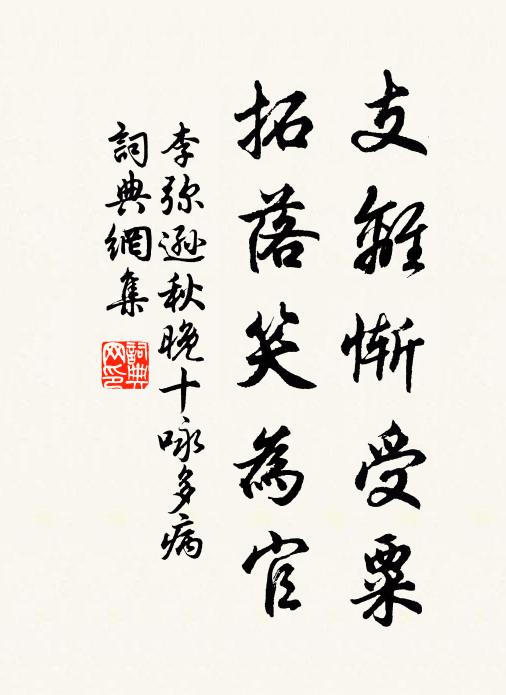 支離慚受粟
拓落笑為官
李弥遜秋晚十咏多病
詞典網集
詞典網印